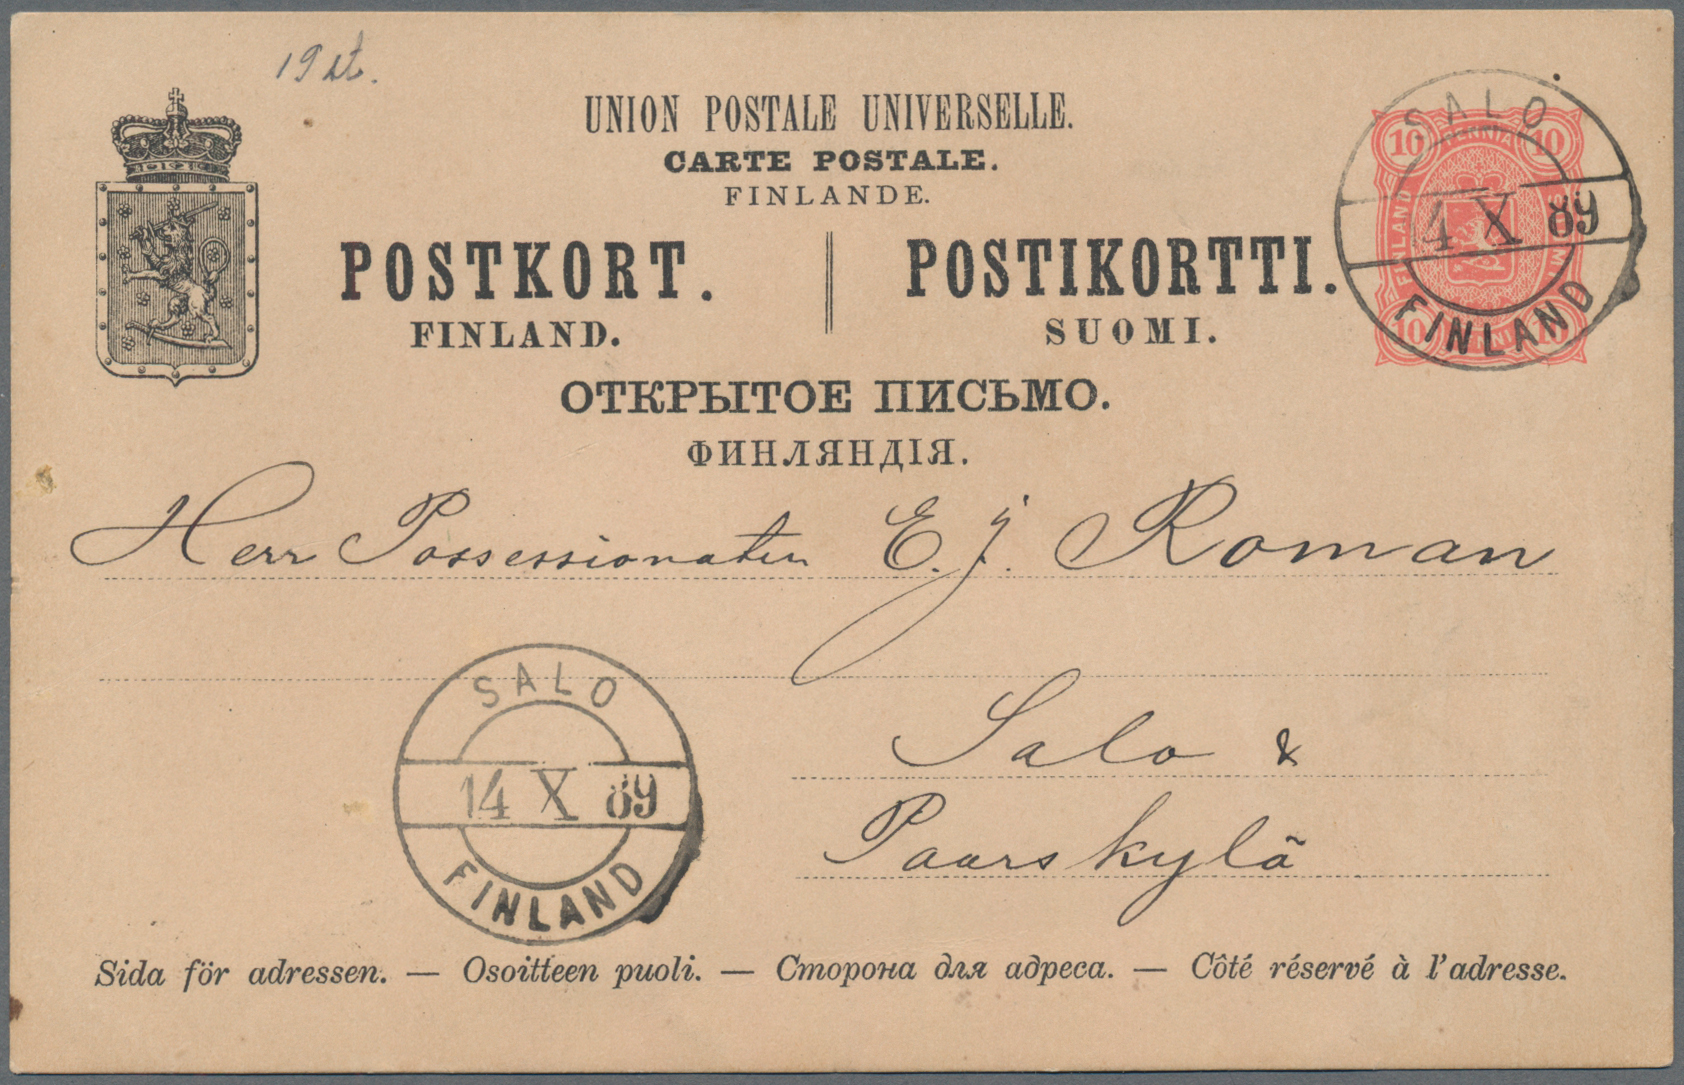 19 st.
UNION POSTALE UNIVERSELLE.
CARTE POSTALE.
FINLANDE.
POSTKORT.
FINLAND.
POSTIKORTTI.
SUOMI.
ОТКРЫТОЕ ПИСЬМО.
ФИНЛЯНДІЯ.
10 PENNIÄ 10
FINLAND
10 10
SALO
14 X 89
FINLAND
Herr Possessionaten E. J. Roman
Salo &
Paarskylä
SALO
14 X 89
FINLAND
Sida för adressen. — Osoitteen puoli. — Сторона для адреса. — Côté réservé à l'adresse.